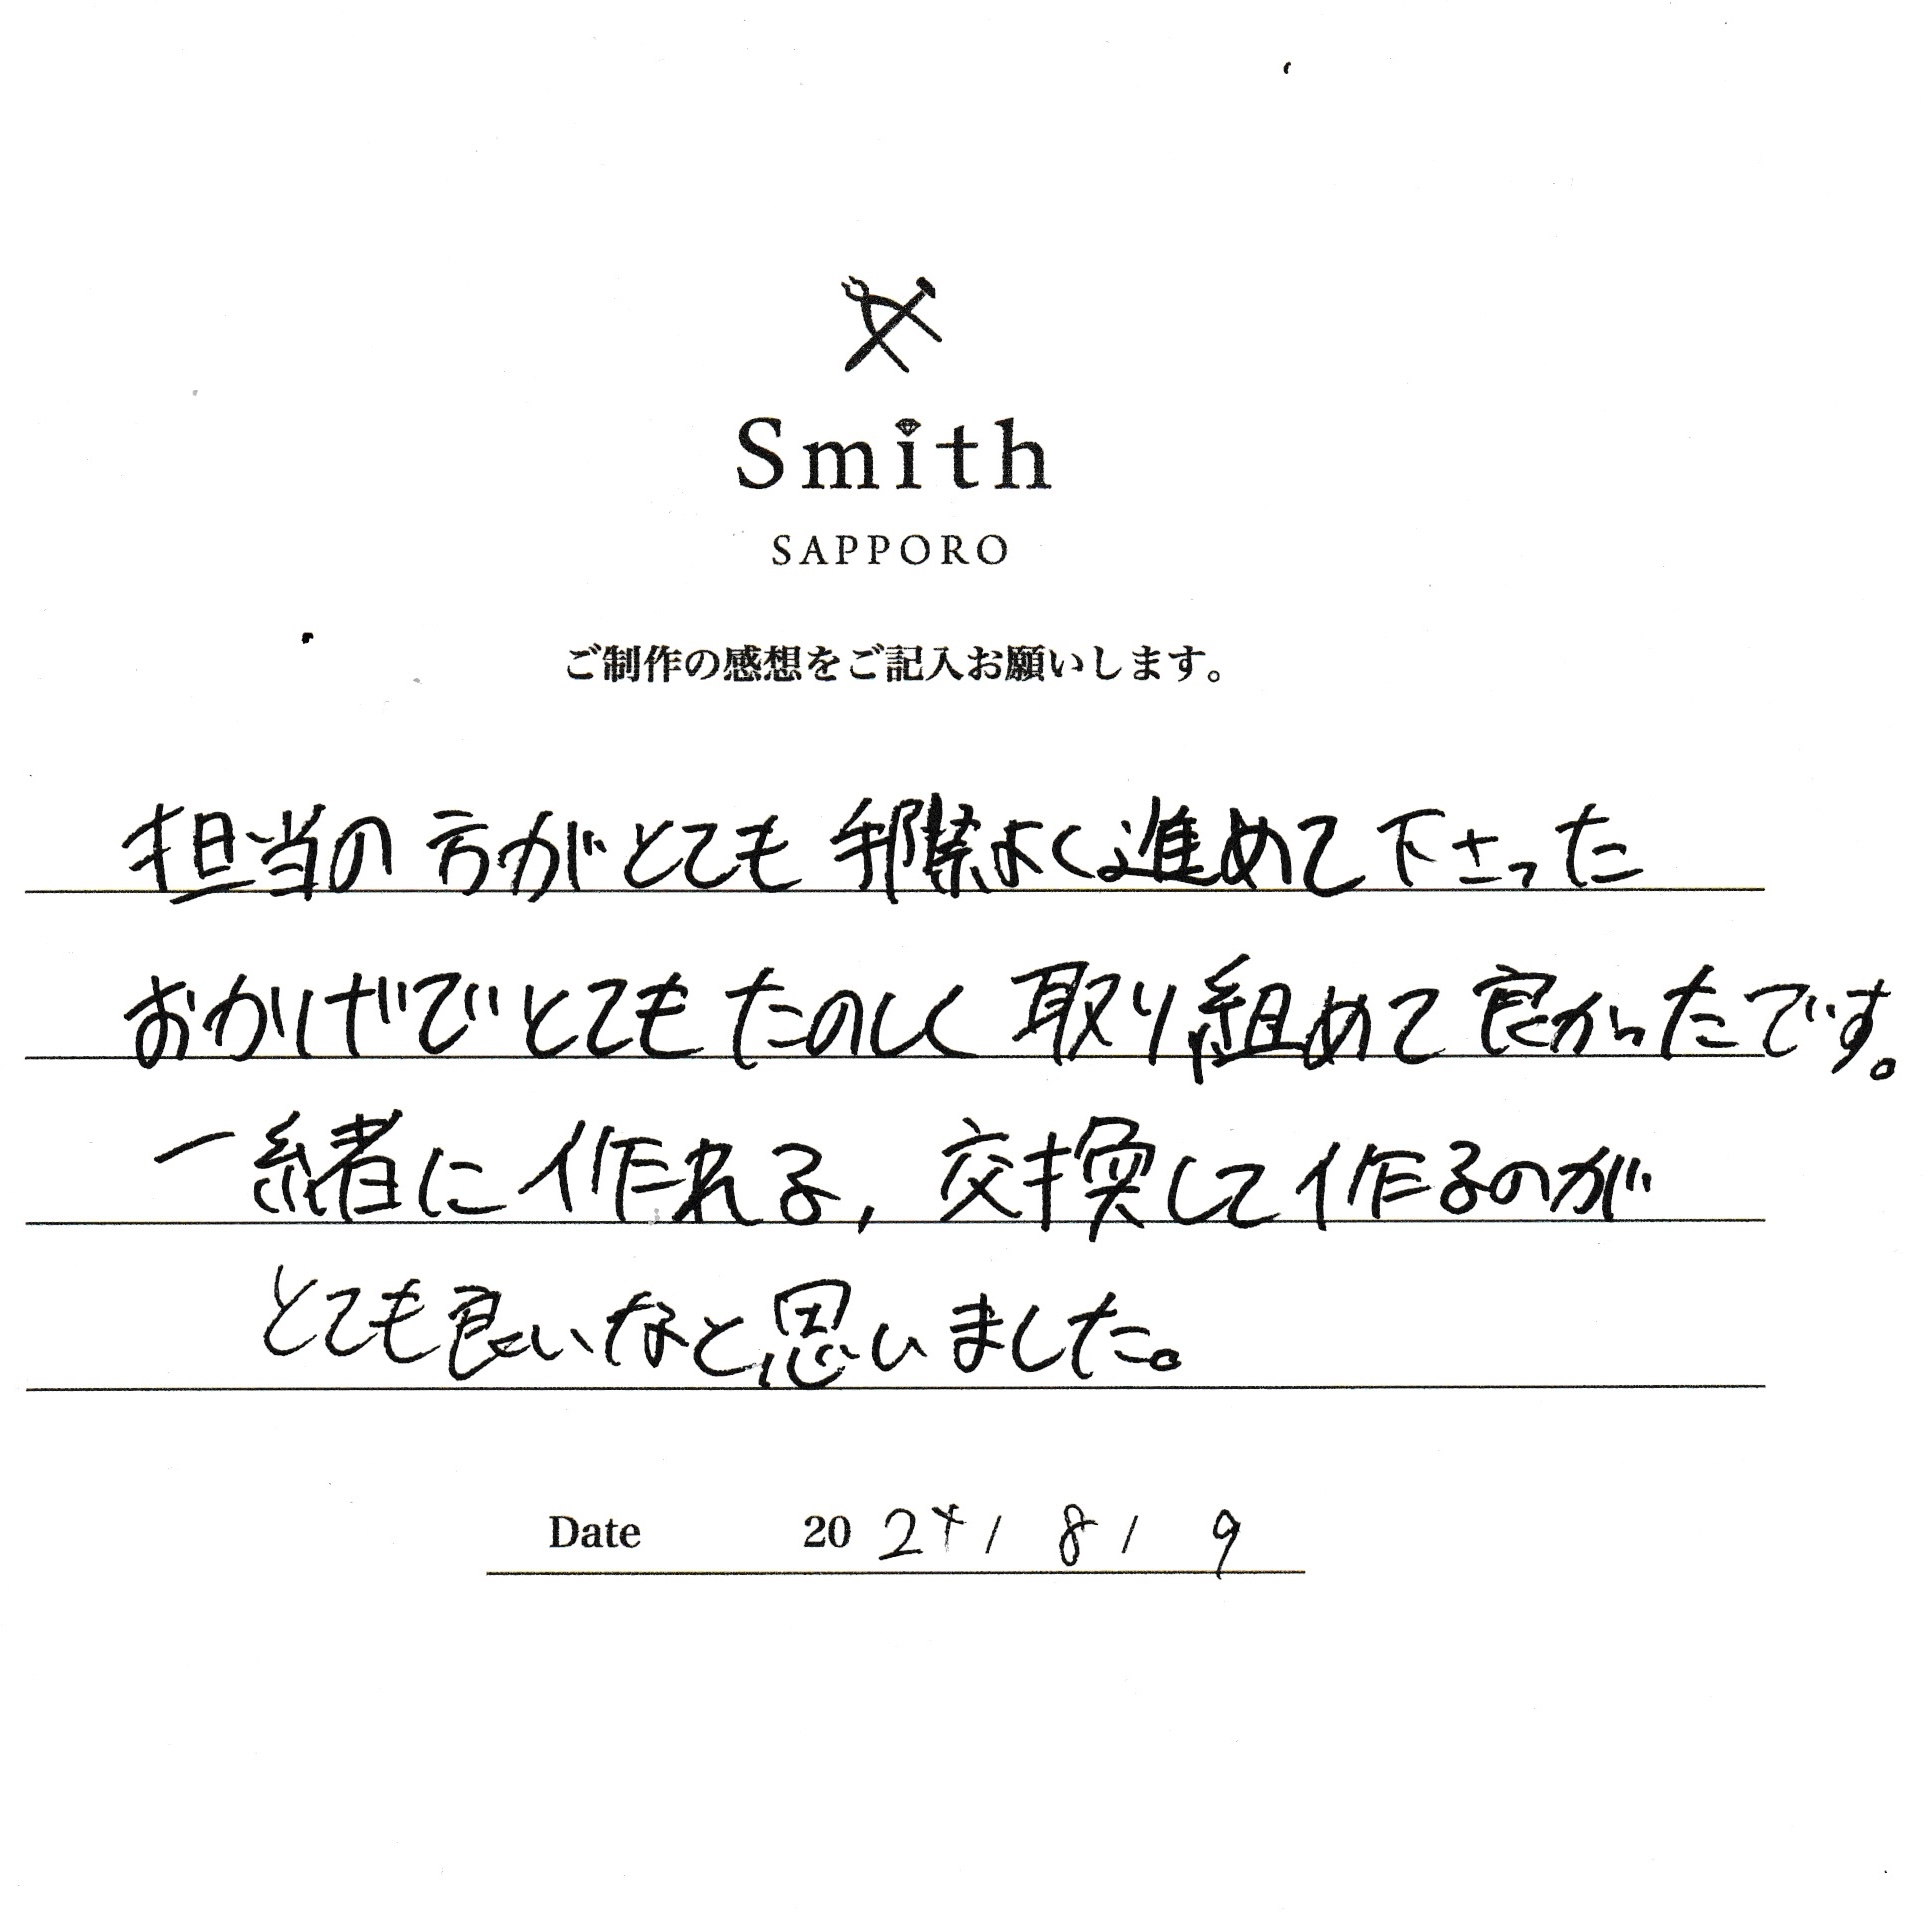 Smith
SAPPORO
ご制作の感想をご記入お願いします。
担当の方がとても手際よく進めて下さった
おかげでとてもたのしく取り組めて良かったです。
一緒に作れる，交換して作るのが
とても良いなと思いました。
Date 2024/8/9